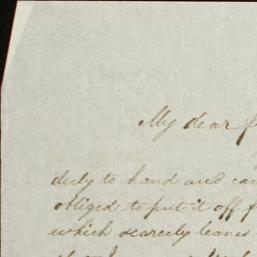 My dear
duly to hand and
obliged to put it off f
which scarcely leaves